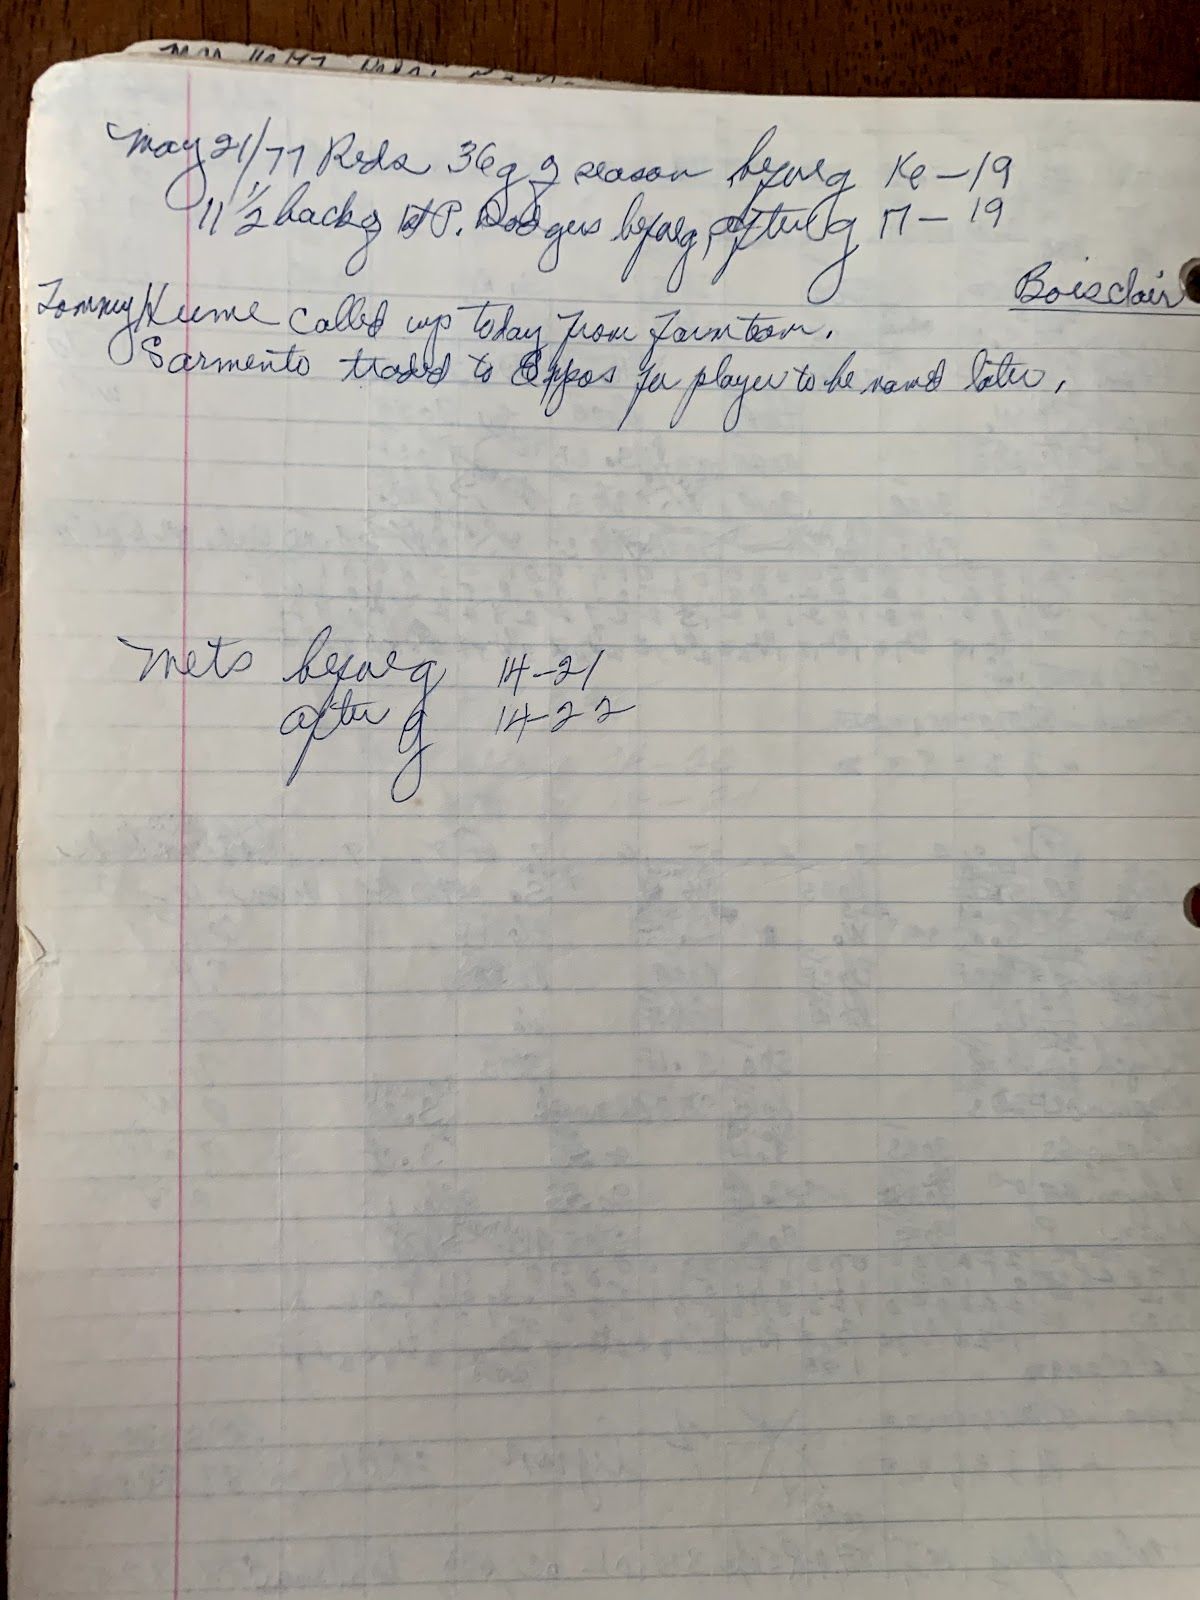 May 21/77 Reds 36 g of season before g 16-19
11 1/2 back of 1st P. Dodgers before g, after g 17-19
Boisclair
Tommy Hume called up today from farm team.
Sarmento traded to Expos for player to be named later.
Mets before g 14-21
after g 14-22